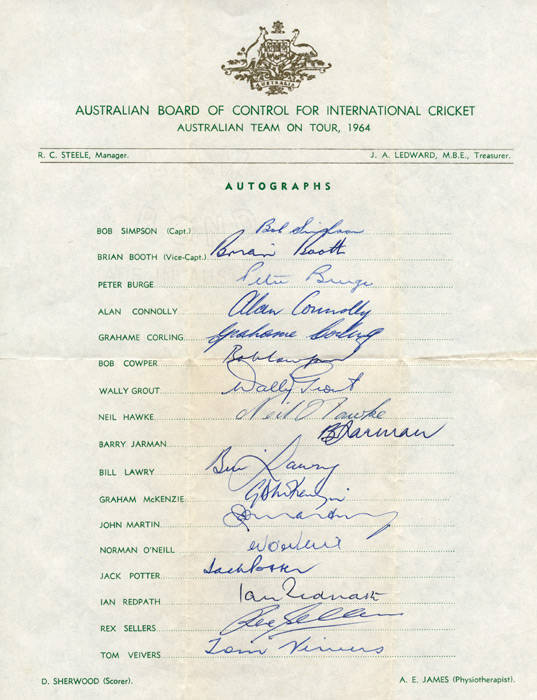 AUSTRALIA
AUSTRALIAN BOARD OF CONTROL FOR INTERNATIONAL CRICKET
AUSTRALIAN TEAM ON TOUR, 1964
R. C. STEELE, Manager. J. A. LEDWARD, M.B.E., Treasurer.
AUTOGRAPHS
BOB SIMPSON (Capt.) Bob Simpson
BRIAN BOOTH (Vice-Capt.) Brian Booth
PETER BURGE Peter Burge
ALAN CONNOLLY Alan Connolly
GRAHAME CORLING Grahame Corling
BOB COWPER Bob Cowper
WALLY GROUT Wally Grout
NEIL HAWKE Neil Hawke
BARRY JARMAN B Jarman
BILL LAWRY Bill Lawry
GRAHAM McKENZIE G D McKenzie
JOHN MARTIN
NORMAN O'NEILL
JACK POTTER Jack Potter
IAN REDPATH Ian Redpath
REX SELLERS Rex Sellers
TOM VEIVERS Tom Veivers
D. SHERWOOD (Scorer). A. E. JAMES (Physiotherapist).